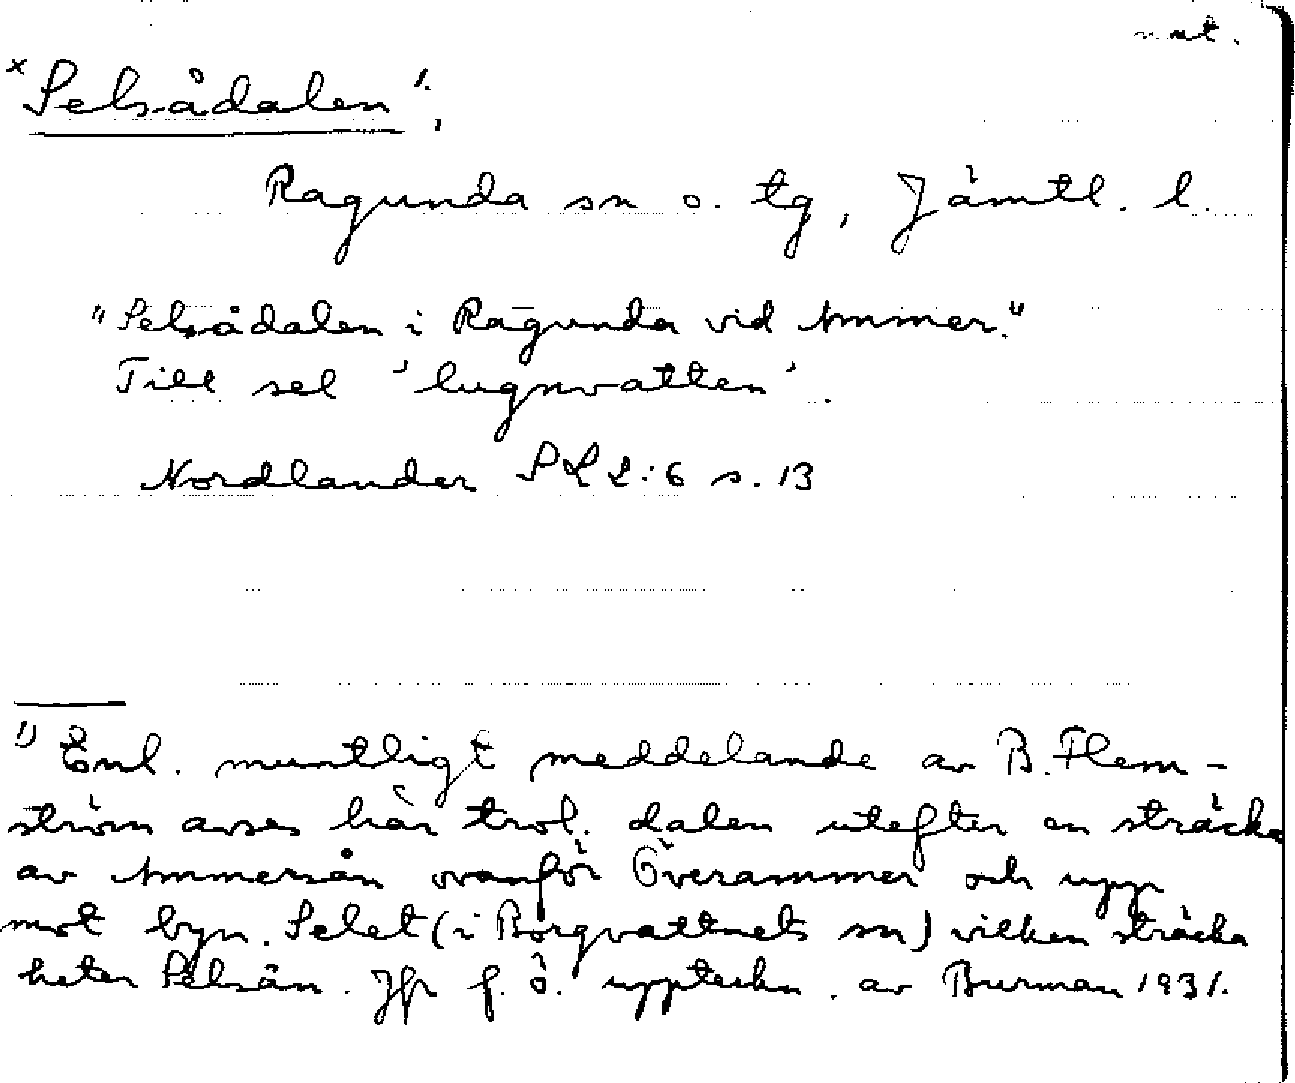 nat.
×Selsådalen ¹⁾,
Ragunda sn o. tg, Jämtl. l.
"Selsådalen i Ragunda vid Ammer."
Till sel 'lugnvatten'.
Nordlander SL 2:6 s. 13
¹⁾ Enl. muntligt meddelande av B. Flem-
ström avses här trol. dalen utefter en sträcka
av Ammersån ovanför Överammer och upp
mot byn Selet (i Borgvattnets sn) vilken sträcka
heter Selsån. Jfr f. ö. uppteckn. av Burman 1931.